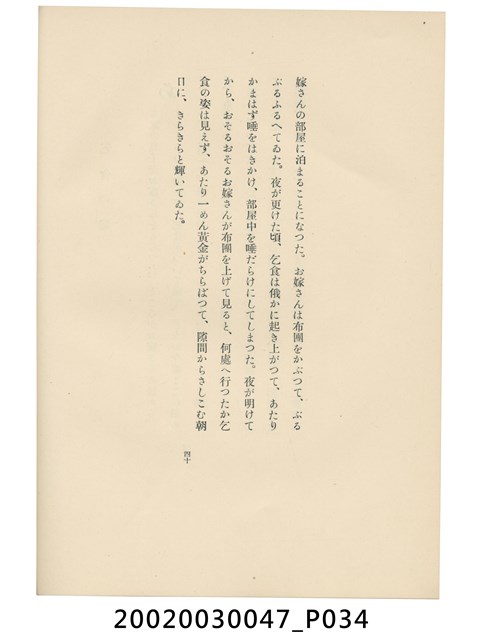 嫁さんの部屋に泊まることになつた。お嫁さんは布團をかぶつて、ぶる
ぶるふるへてゐた。夜が更けた頃、乞食は俄かに起き上がつて、あたり
かまはず唾をはきかけ、部屋中を唾だらけにしてしまつた。夜が明けて
から、おそるおそるお嫁さんが布團を上げて見ると、何處へ行つたか乞
食の姿は見えず、あたり一めん黃金がちらばつて、隙間からさしこむ朝
日に、きらきらと輝いてゐた。
四十
20020030047_P034